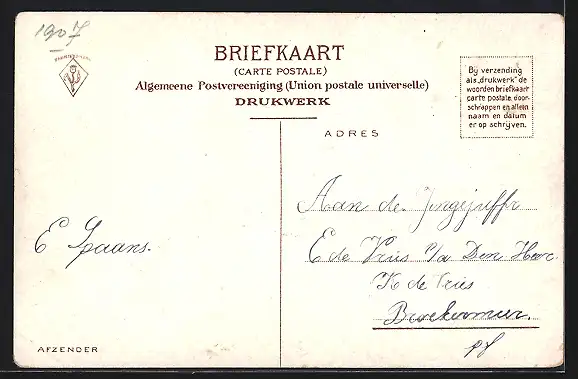 1907
BRIEFKAART
(CARTE POSTALE)
Algemeene Postvereeniging (Union postale universelle)
DRUKWERK
Bij verzending
als „drukwerk" de
woorden briefkaart
carte postale door-
schrappen en alleen
naam en datum
er op schrijven.
ADRES
Aan de Jongejuffr
E de Vries c/a Den Heer
K de Vries
E
AFZENDER